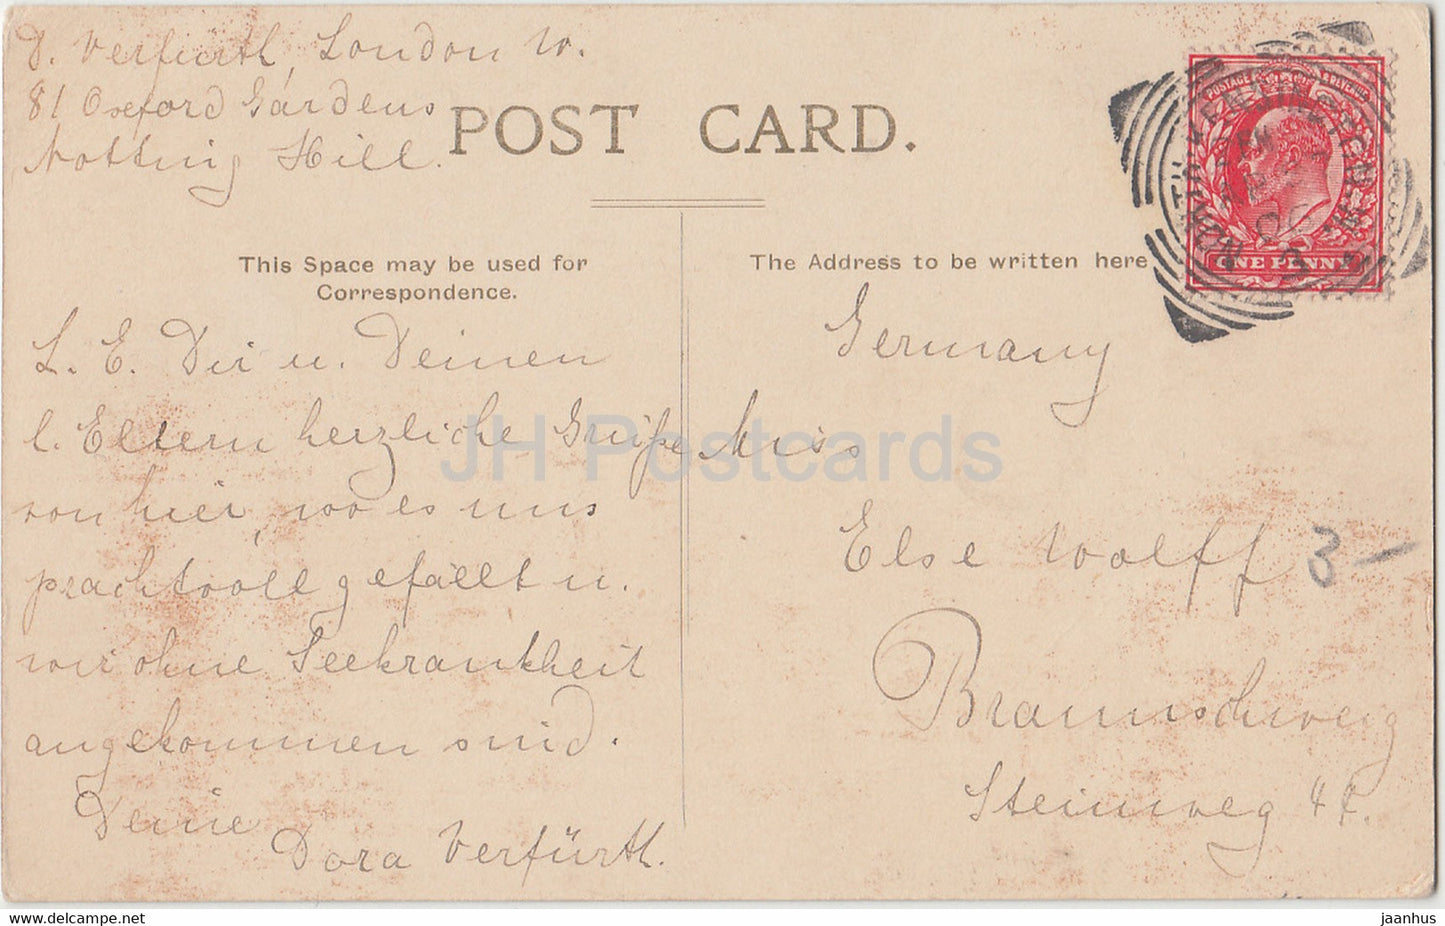 D. Verfürth, London W.
81 Oxford Gardens
Notting Hill.
POST CARD.
This Space may be used for
Correspondence.
The Address to be written here
POSTAGE REVENUE
ONE PENNY
KENSINGTON
L. E. Dir u. Deinen
l. Eltern herzliche Grüße
von hier, wo es uns
prachtvoll gefällt u.
wir ohne Seekrankheit
angekommen sind.
Deine
Dora Verfürth.
Germany
Miss
Else Wolff
3-
Braunschweig
Steinweg
JH Postcards
jaanhus